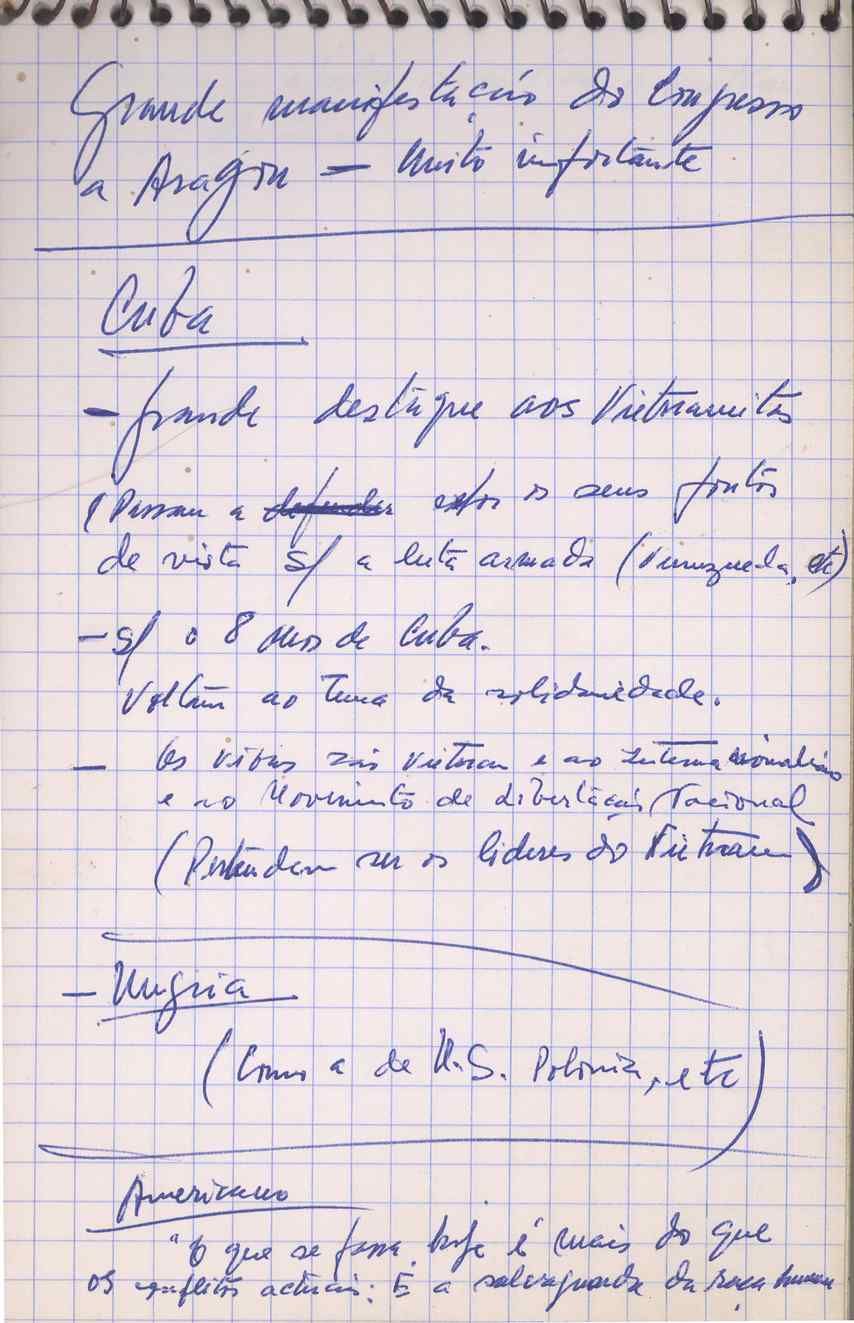 Grande manifestação do Congresso
a Aragon — Muito importante
Cuba
- grande destaque aos Vietnamitas
(Passam a defender expor os seus pontos
de vista s/ a luta armada (Venezuela, etc)
- s/ o 8 anos de Cuba.
Voltam ao tema da solidariedade.
- Os vivas são Vietnam e ao Internacionalismo
e ao Movimento de Libertação Nacional
(Pretendem ser os lideres do Vietnam)
- Hungria
(Como a de U.S. Polonia, etc)
Americano
"O que se passa hoje é mais do que
os conflitos actuais: É a salvaguarda da raça humana